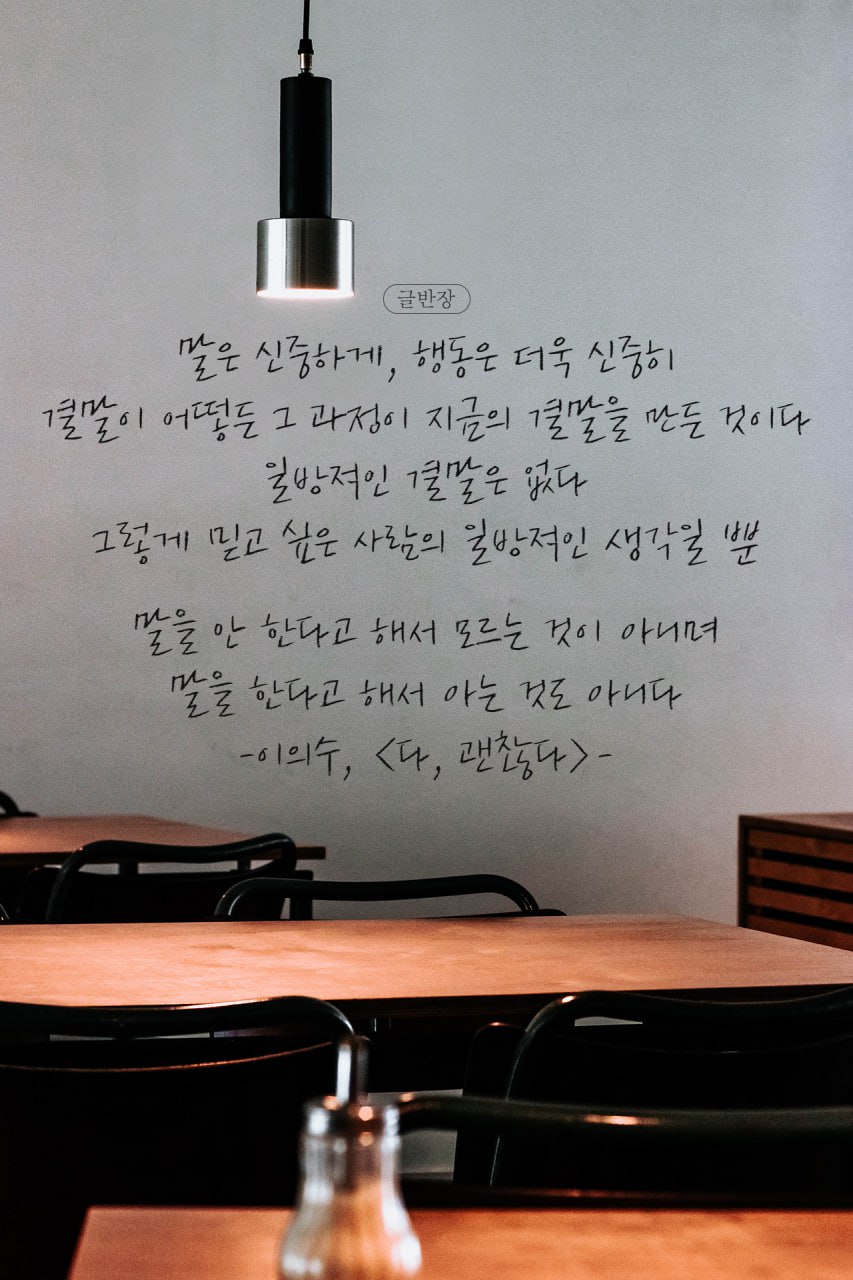 글반장
말은 신중하게, 행동은 더욱 신중히
결말이 어떻든 그 과정이 지금의 결말을 만든 것이다
일방적인 결말은 없다
그렇게 믿고 싶은 사람의 일방적인 생각일 뿐
말을 안 한다고 해서 모르는 것이 아니며
말을 한다고 해서 아는 것도 아니다
-이의수, <다, 괜찮다>-